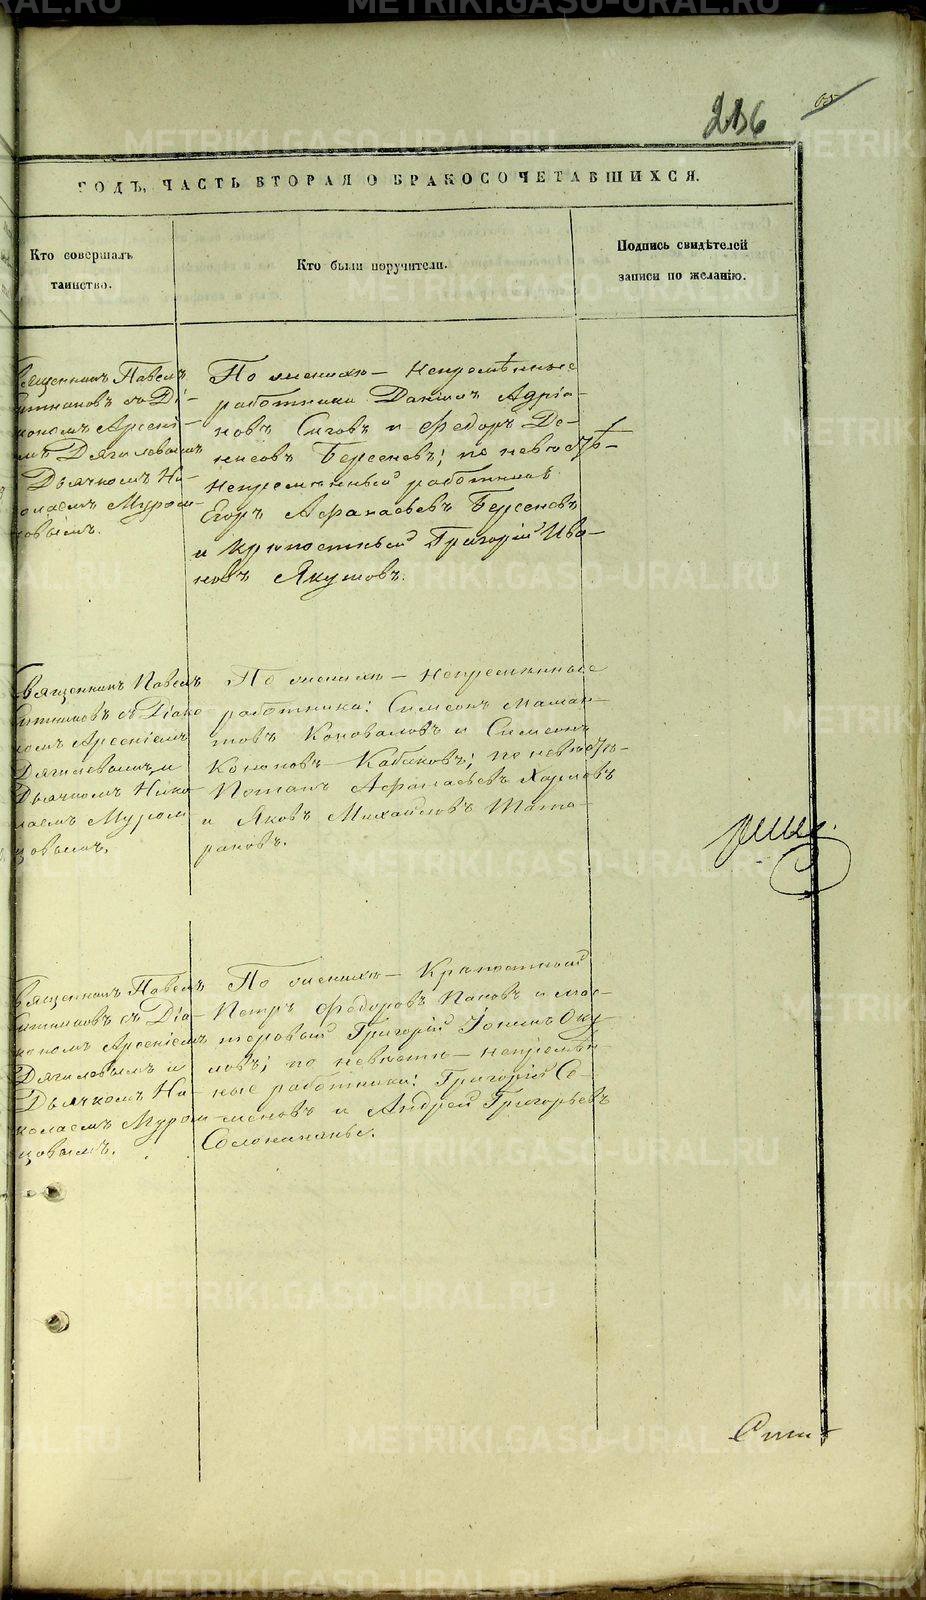 236
65
ГОДЪ, ЧАСТЬ ВТОРАЯ О БРАКОСОЧЕТАВШИХСЯ.
Кто совершалъ
таинство.
Кто были поручители.
Подпись свидѣтелей
записи по желанію.
священникъ Павелъ
съ Ді-
кономъ Арсені-
емъ Дягилевымъ
Дьячкомъ Ни-
олаемъ Муром-
цовымъ.
По женихѣ – Непремѣнные
работники Данилъ Адріа-
новъ Сиговъ и Федоръ Де-
нисовъ Берсеневъ; по невѣстѣ –
Непремѣнный работникъ
Егоръ Афанасьевъ Берсеневъ
и крѣпостный Григорій Ива-
новъ Якутовъ.
Священникъ Павелъ
съ Діако
номъ Арсеніемъ
Дягилевымъ и
Дьячкомъ Нико
лаемъ Муром
цовымъ.
По женихѣ – Непремѣнные
работники: Симеонъ Маман-
товъ Коноваловъ и Симеонъ
Кононовъ Кабаковъ; по невѣстѣ –
Потапъ Афанасьевъ Харловъ
и Яковъ Михайловъ Шата-
раковъ.
Священникъ Павелъ
съ Діа-
кономъ Арсеніемъ
Дягилевымъ и
Дьячкомъ Ни-
колаемъ Муром
цовымъ.
По женихѣ – Крѣпостный
Петръ Федоровъ Пановъ и мас-
теровый Григорій Іонинъ Оку-
ловъ; по невѣстѣ – непремѣн-
ные работники: Григорій Се-
меновъ и Андрей Григорьевъ
Солонинины.
METRIKI.GASO-URAL.RU